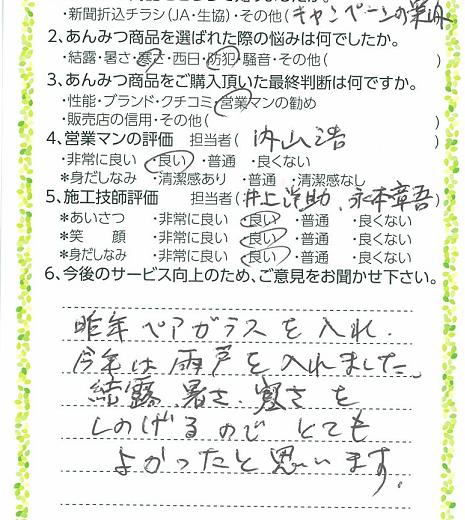 ・新聞折込チラシ(JA・生協)・その他(キャンペーンの
2、あんみつ商品を選ばれた際の悩みは何でしたか。
・結露・暑さ・寒さ・西日・防犯・騒音・その他( )
3、あんみつ商品をご購入頂いた最終判断は何ですか。
・性能・ブランド・クチコミ・営業マンの勧め
・販売店の信用・その他( )
4、営業マンの評価 担当者(内山浩
・非常に良い ・良い ・普通 ・良くない
*身だしなみ ・清潔感あり ・普通 ・清潔感なし
5、施工技師評価 担当者(井上洋助、永本章吾)
*あいさつ ・非常に良い ・良い ・普通 ・良くない
*笑 顔 ・非常に良い ・良い ・普通 ・良くない
*身だしなみ ・非常に良い ・良い ・普通 ・良くない
6、今後のサービス向上のため、ご意見をお聞かせ下さい。
昨年ペアガラスを入れ、
今年は雨戸を入れました。
結露、暑さ、寒さを
しのげるので とても
よかったと思います。